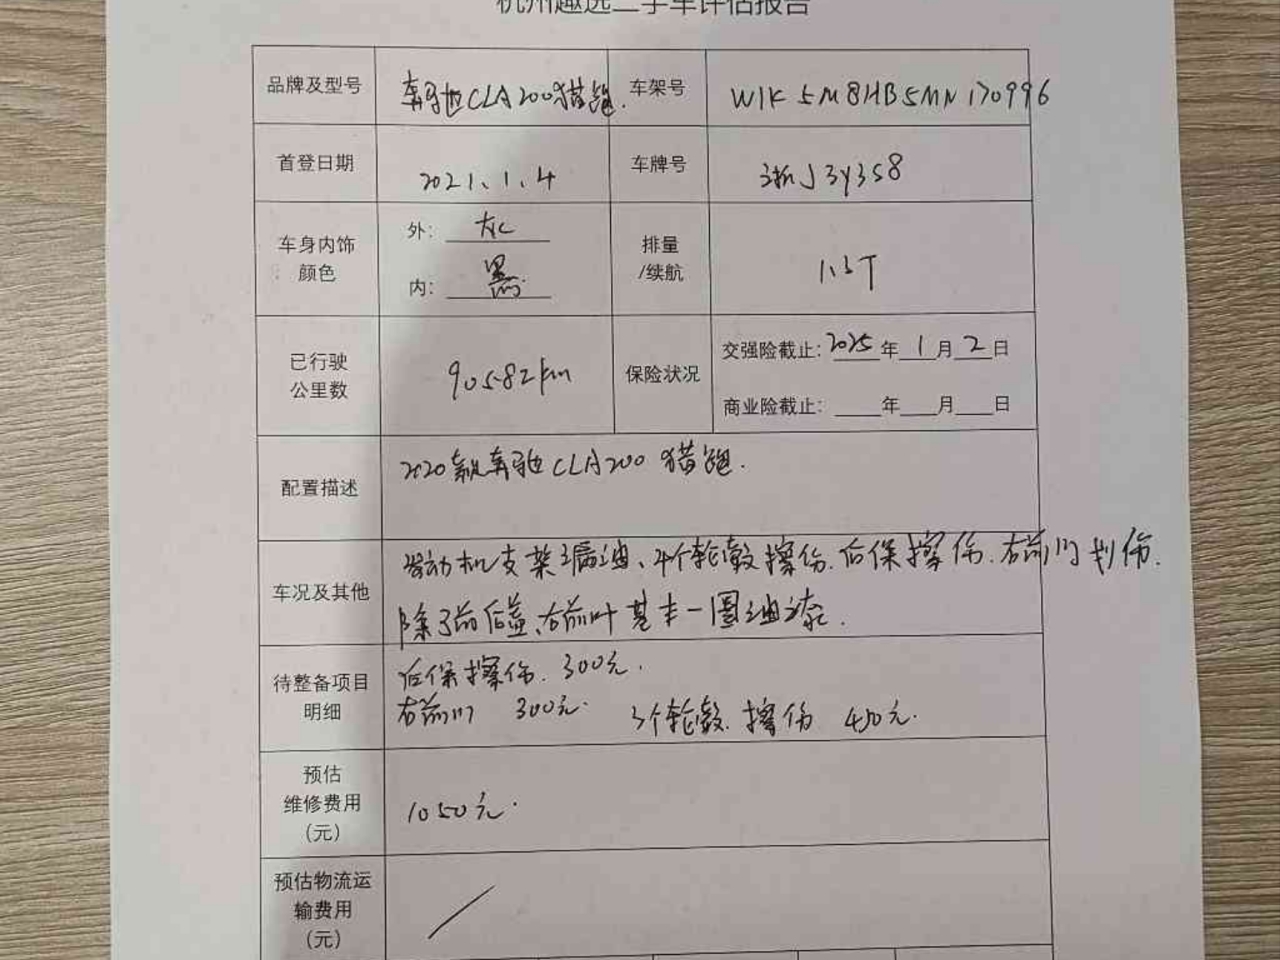 杭州趣选二手车评估报告
品牌及型号 奔驰CLA200猎跑. 车架号 W1K5M8HB5MN170996
首登日期 2021.1.4 车牌号 浙J3Y3S8
车身内饰颜色 外: 灰 内: 黑 排量/续航 1.3T
已行驶公里数 90582km 保险状况 交强险截止: 2025年1月2日
商业险截止: ____年____月____日
配置描述 2020款奔驰CLA200 猎跑.
车况及其他 发动机支架漏油、4个轮毂擦伤.后保擦伤.右前门划伤.
除了前后盖、右前叶基本一圈油漆.
待整备项目明细 后保擦伤. 300元.
右前门 300元. 3个轮毂.擦伤 450元.
预估维修费用(元) 1050元.
预估物流运输费用(元) /